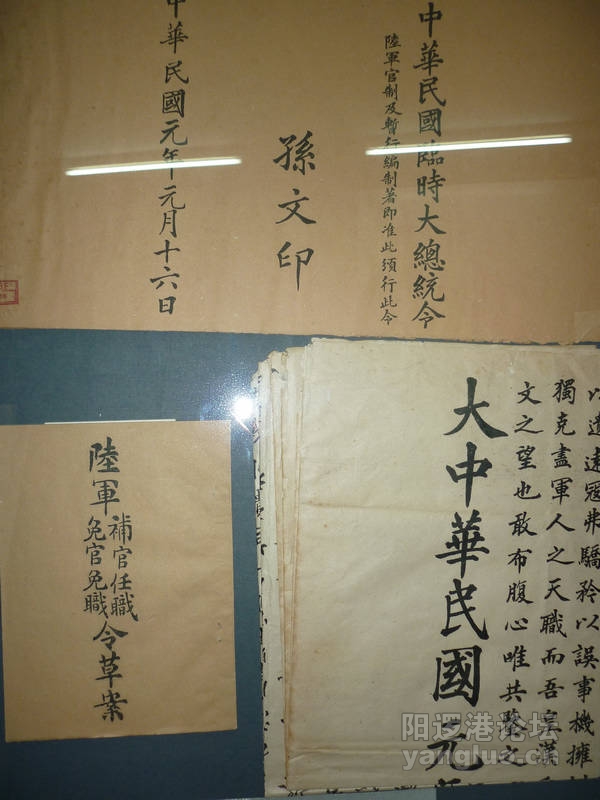 中華民國臨時大總統令
陸軍官制及暫行編制著即准此頒行此令
孫文印
中華民國元年元月十六日
陸軍
補官任職
免官免職
令草案
以遺遠寇弗驕矜以誤事機擁
獨克盡軍人之天職而吾皇漢
文之望也敢布腹心唯共鑒之
大中華民國元
阳逻港论坛
yangluz.cn